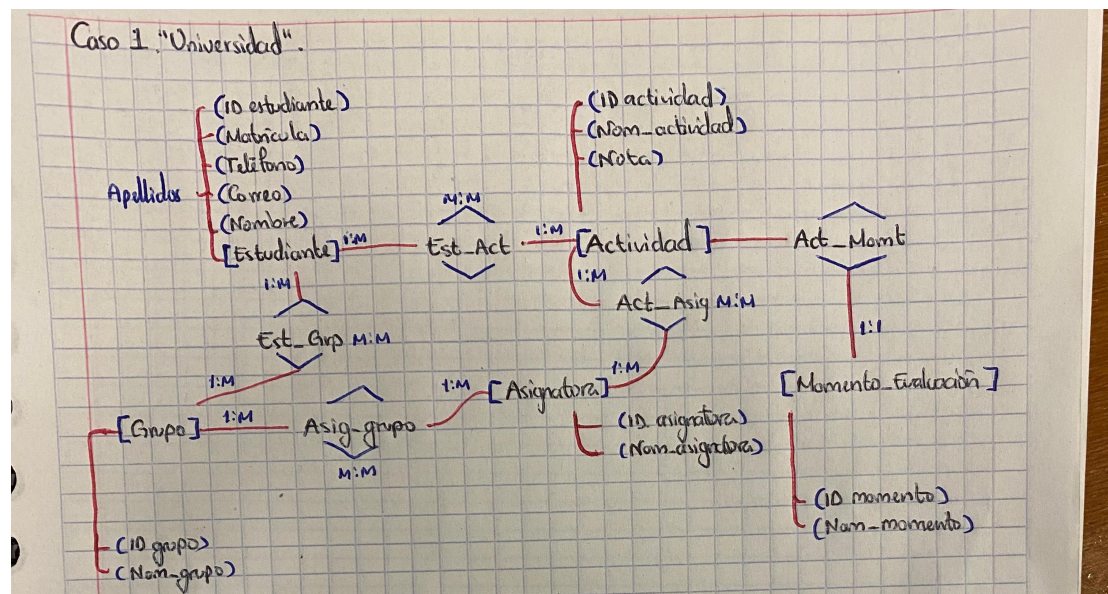 Caso 1. "Universidad".
(ID estudiante)
(Matrícula)
(Teléfono)
Apellidos (Correo)
(Nombre)
[Estudiante] 1:M
M:M
Est_Act 1:M
(ID actividad)
(Nom_actividad)
(Nota)
[Actividad]
Act_Momt
1:M
Act_Asig M:M
1:M
Est_Grp M:M
1:M
1:1
[Momento_Evaluación]
1:M
[Grupo] 1:M Asig-grupo 1:M [Asignatura]
M:M
(ID asignatura)
(Nom_asignatura)
(ID momento)
(Nom_momento)
(ID grupo)
(Nom_grupo)